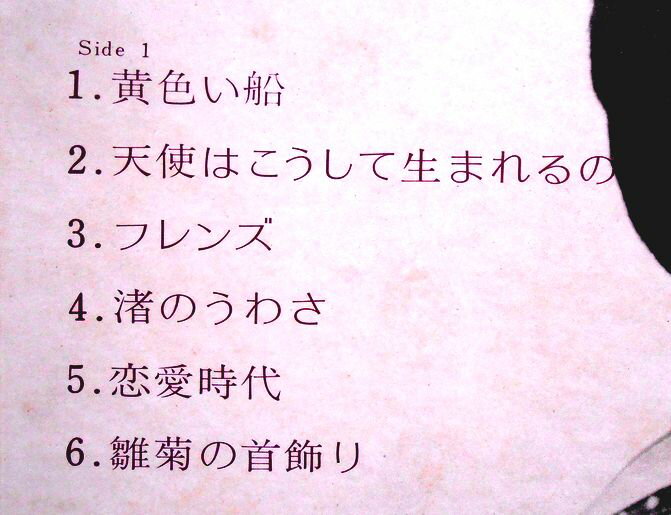 Side 1
1.黄色い船
2.天使はこうして生まれるの
3.フレンズ
4.渚のうわさ
5.恋愛時代
6.雛菊の首飾り